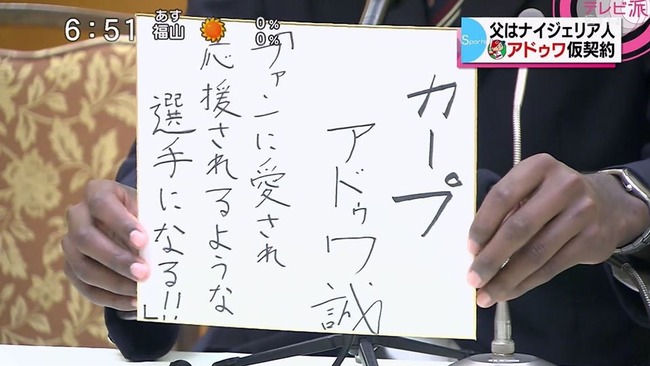 6:51
あす
福山
0%
0%
テレビ派
Sports
父はナイジェリア人
アドゥワ仮契約
カープ
アドゥワ誠
「ファンに愛され
応援されるような
選手になる!!」